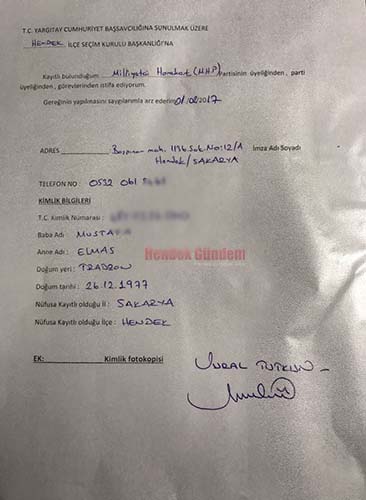 T.C. YARGITAY CUMHURİYET BAŞSAVCILIĞINA SUNULMAK ÜZERE
HENDEK İLÇE SEÇİM KURULU BAŞKANLIĞI'NA
Kayıtlı bulunduğum Milliyetçi Hareket (MHP) Partisinin üyeliğinden, parti
üyeliğinden, görevlerinden istifa ediyorum.
Gereğinin yapılmasını saygılarımla arz ederim 01/08/2017
ADRES Başpınar mah. 1136.Sok. No:12/A İmza Adı Soyadı
Hendek/SAKARYA
TELEFON NO : 0532 061
KİMLİK BİLGİLERİ
T.C. Kimlik Numarası :
Baba Adı : MUSTAFA
Anne Adı : ELMAS
Hendek Gündem
Doğum yeri : TRABZON
Doğum tarihi : 26.12.1977
Nüfusa Kayıtlı olduğu İl : SAKARYA
Nüfusa Kayıtlı olduğu İlçe : HENDEK
EK: Kimlik fotokopisi
VURAL TUTKUN